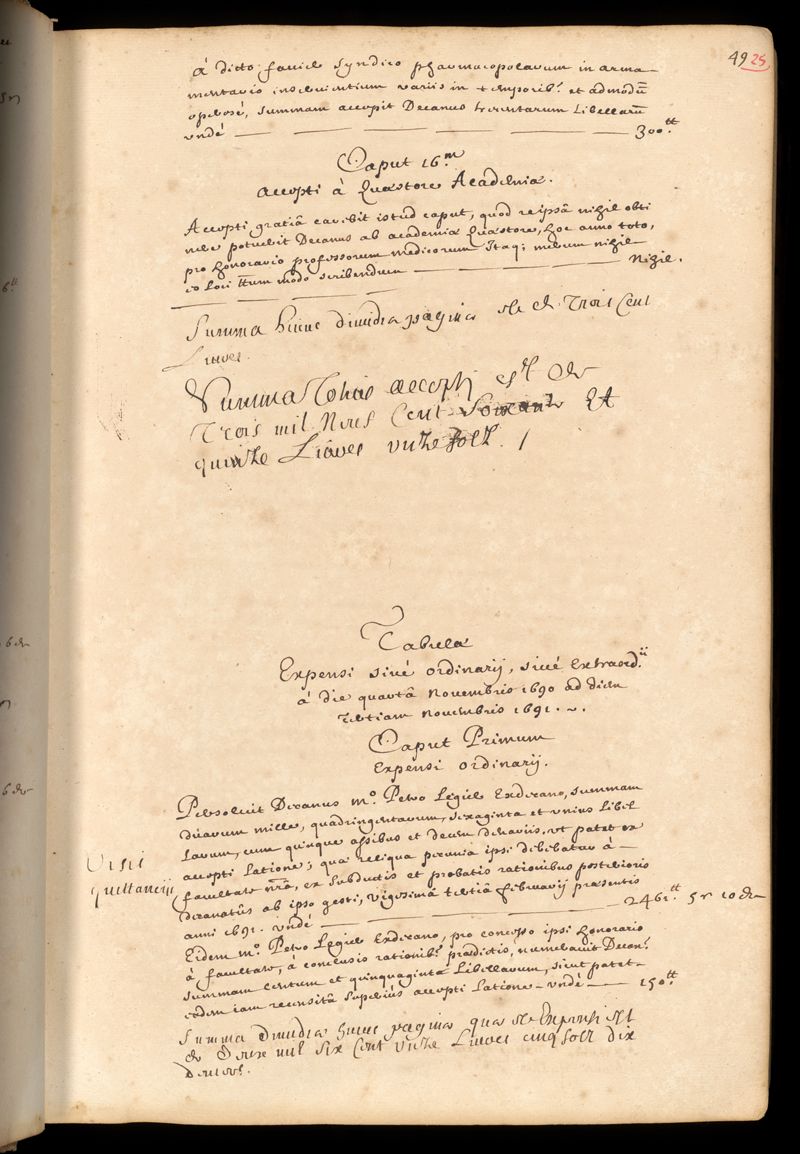 49 25
à dicto faviel Syndico pharmacopolarum in arma-
mentario inservientium variis in temporib.' et admodū
operosé, summam accepit Decanus trecentarum Libellarū
undé — — — — 300.tt
Caput 16.m
accepti à Quæstore Academiæ.
Accepti gratiâ carebit istud caput, quod reipsâ nihil obti
nere potuerit Decanus ab academiæ Quæstore, hoc anno toto,
pro honorario professorum medicorum Itaq; merum nihil
eo Loci ttum modo scribendum — — Nihil.
Summa huius dimidiæ paginæ est de Trois Cent
Livres.
Summa Totius accepti est de
Trois mil Neuf Cent Soixante Et
quinze Livres unze solz /
Tabula
Expensi sivé ordinarij, sivé Extraord.ii
à die quartâ Novembris 1690 ad diem
tertiam novembris 1691. ~.
Caput Primum
Expensi ordinarij.
Persoluit Decanus m.o Petro Legier Exdecano, summam
duarum mille, quadringentarum, sexaginta et unius Libel
larum, cum quinque assibus et decem denariis, ut patet ex
accepti Latione; quæ reliqua pecunia ipsi debebatur à
facultate nrâ, ex subductis et probatis rationibus posterioris
decanatûs ab ipso gesti, vigesimâ tertiâ februarij præsentis
anni 1691. undé — — 2461.tt 5s 10 d
Visis
quittanciis
Eidem m.o Petro Legier Exdecano, pro concesso ipsi honorario
à facultate, à conclusio rationib.' prædictis, numeravit Decan.'
summam centum et quinquaginta Libellarum, sicut patet
eadem iam recensitâ superius accepti Latione undé — 150.tt
Summa dimidiæ huius paginæ quæ est Expensi est
de Deux mil six Cent unze Livres cinq solz dix
deniers.